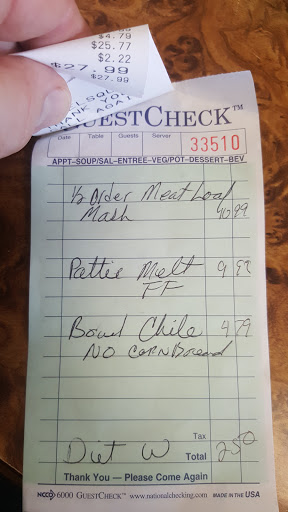 $4.79
$25.77
$2.22
$27.99
$27.99
THANK YOU
AGAIN
GUESTCHECK™
Date Table Guests Server
33510
APPT-SOUP/SAL-ENTREE-VEG/POT-DESSERT-BEV
½ Order Meat Loaf
Mash 10 99
Pattie Melt 9 99
FF
Bowl Chile 4 79
NO CORNBread
Tax
Diet W Total 2 50
Thank You — Please Come Again
NCCO 6000 GUESTCHECK™ www.nationalchecking.com MADE IN THE USA